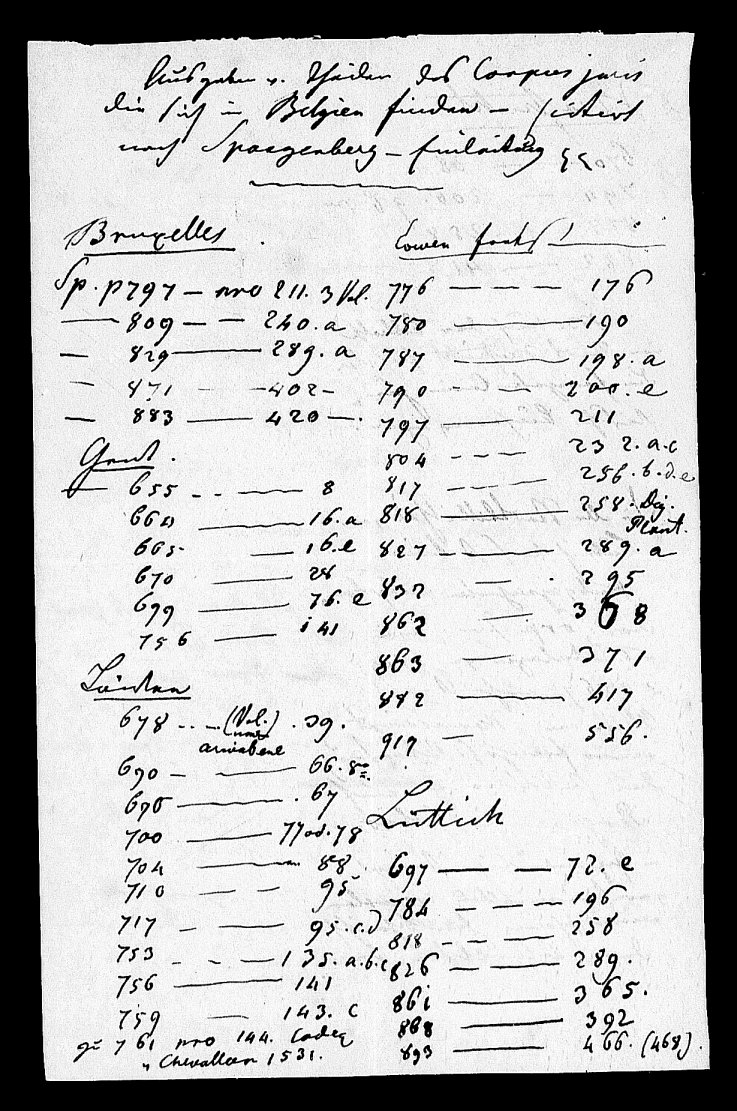 Ausgaben v. Theilen des Corpus juris
die sich in Belgien finden – citirt
nach Spangenberg – Einleitung
Bruxelles
Sp. p 797 – nro 211. 3 Vol.
— 809 — — 240. a
— 829 — 289. a
— 871 — — 402 –
— 883 — 420 —.
Gent.
— 655 - - — 8
664 — 16. a
665 — 16. e
670 — 28
699 — 76. e
756 — 141
Löwen
678 - - (Vol.) . 39.
690 — — 66. 8°.
695 — . 67
700 — 77 od. 78
704 — 88.
710 — — 95
717 — — 95. c. d
753 — — 135. a. b. c
756 — 141
759 — 143. c
761 nro 144. Codex
" Chevallon 1531.
Löwen forts.
776 — — — 176
780 — 190
787 — 198. a
790 — — — 200. e
797 — 211
804 — — — 232. a. c
817 — — — 256. b. d. e
818 — 258. Dig.
Plant.
827 — 289. a
832 — . 295
862 — 368
863 — 371
882 — 417
917 — 556.
Lüttich
697 — — 72. e
784 — — — 196
818 — — — 258
826 — — 289.
861 — 365.
868 — 392
893 — 466. (468).